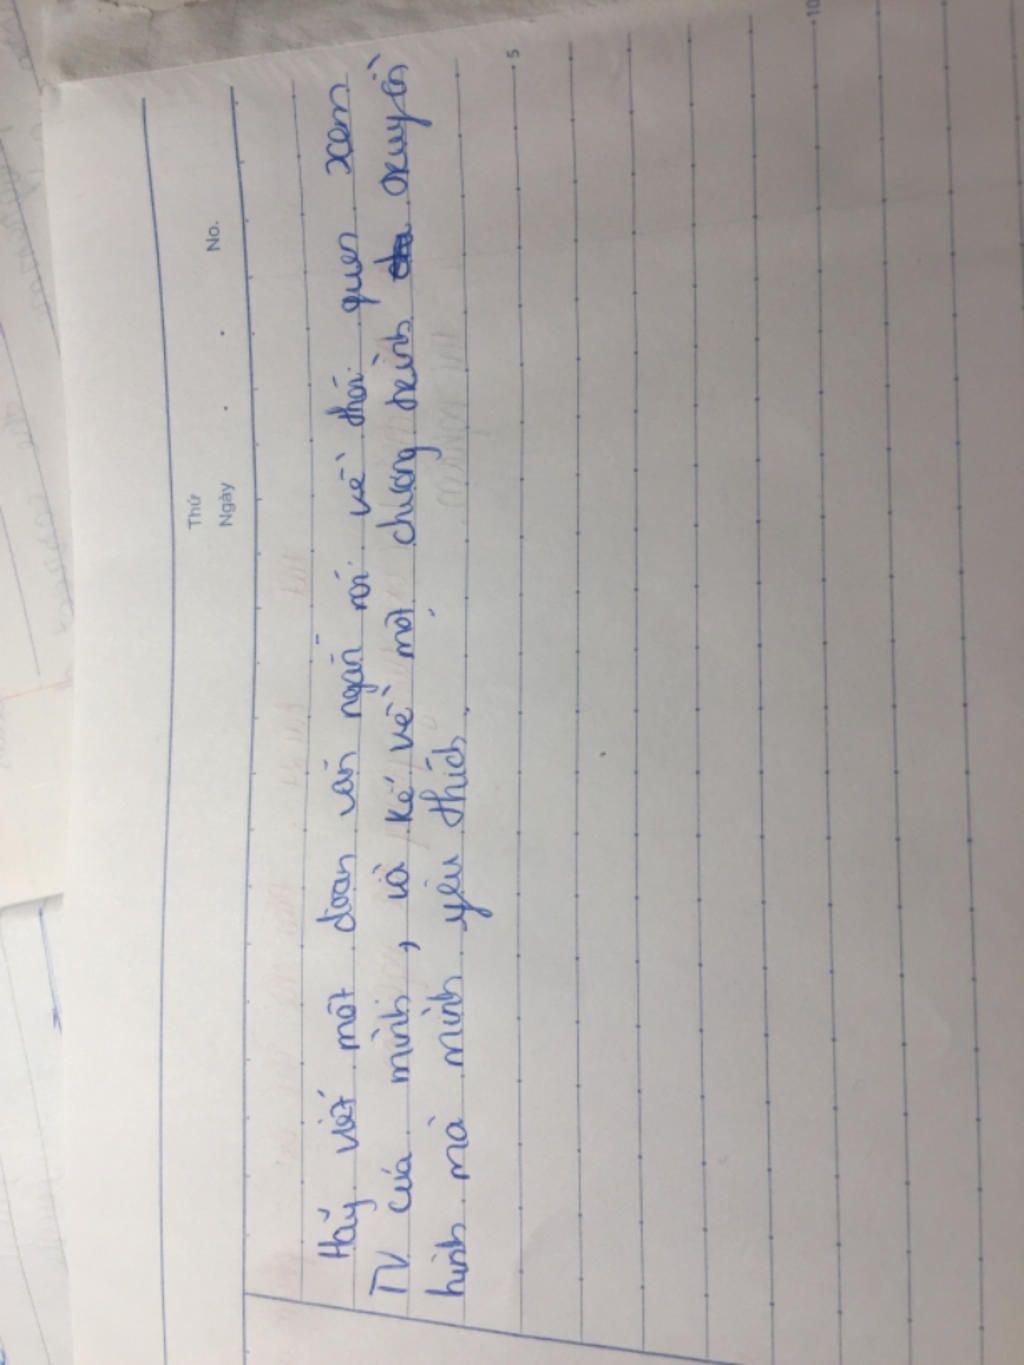 Thứ
Ngày
No.
Hãy viết một đoạn văn ngắn nói về thói quen xem
TV của mình, và kể về một chương trình truyền
hình mà mình yêu thích.
5
10